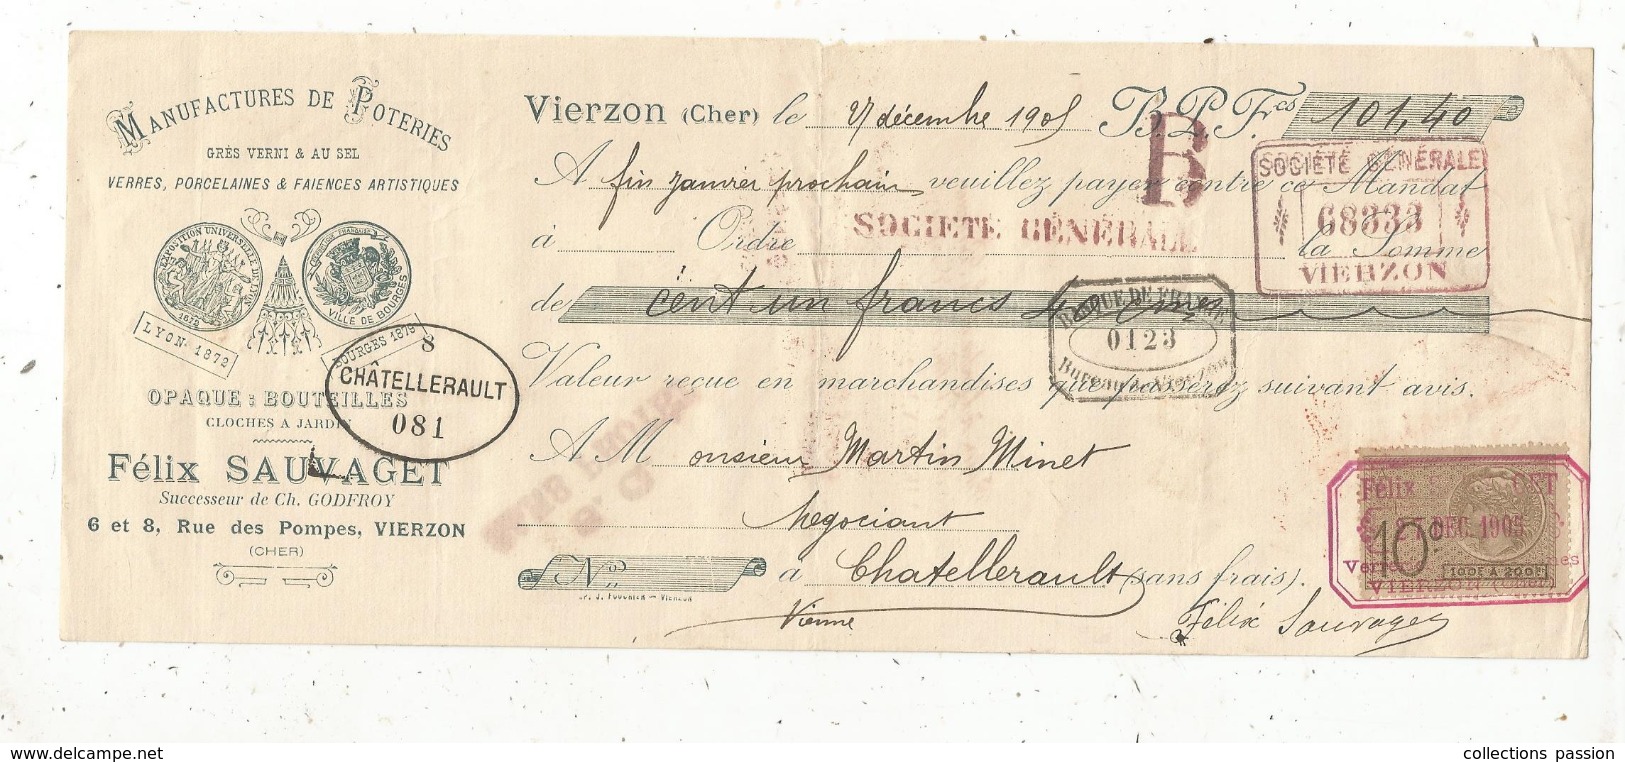 MANUFACTURES DE POTERIES
GRÈS VERNI & AU SEL
VERRES, PORCELAINES & FAIENCES ARTISTIQUES
EXPOSITION UNIVERSELLE DE LYON
1872
VILLE DE BOURGES
LYON 1872
BOURGES 1879
OPAQUE : BOUTEILLES
CLOCHES A JARDIN
Félix SAUVAGET
Successeur de Ch. GODFROY
6 et 8, Rue des Pompes, VIERZON
(CHER)
8
CHÂTELLERAULT
081
Vierzon (Cher) le décembre 1905 B.P.Fcs 101,40
A fin Janvier prochain veuillez payer contre ce Mandat
à Ordre SOCIÉTÉ GÉNÉRALE la Somme
de cent un francs
Valeur reçue en marchandises que passerez suivant avis.
A Monsieur Martin Minet
Négociant
No à Chatellerault (sans frais).
Vienne
Félix Sauvaget
B
SOCIÉTÉ GÉNÉRALE
68333
VIERZON
BANQUE DE FRANCE
0123
Bureau de Vierzon
Félix
27 DEC. 1905
10c
100F A 200F
VIERZON
collections passion
www.delcampe.net